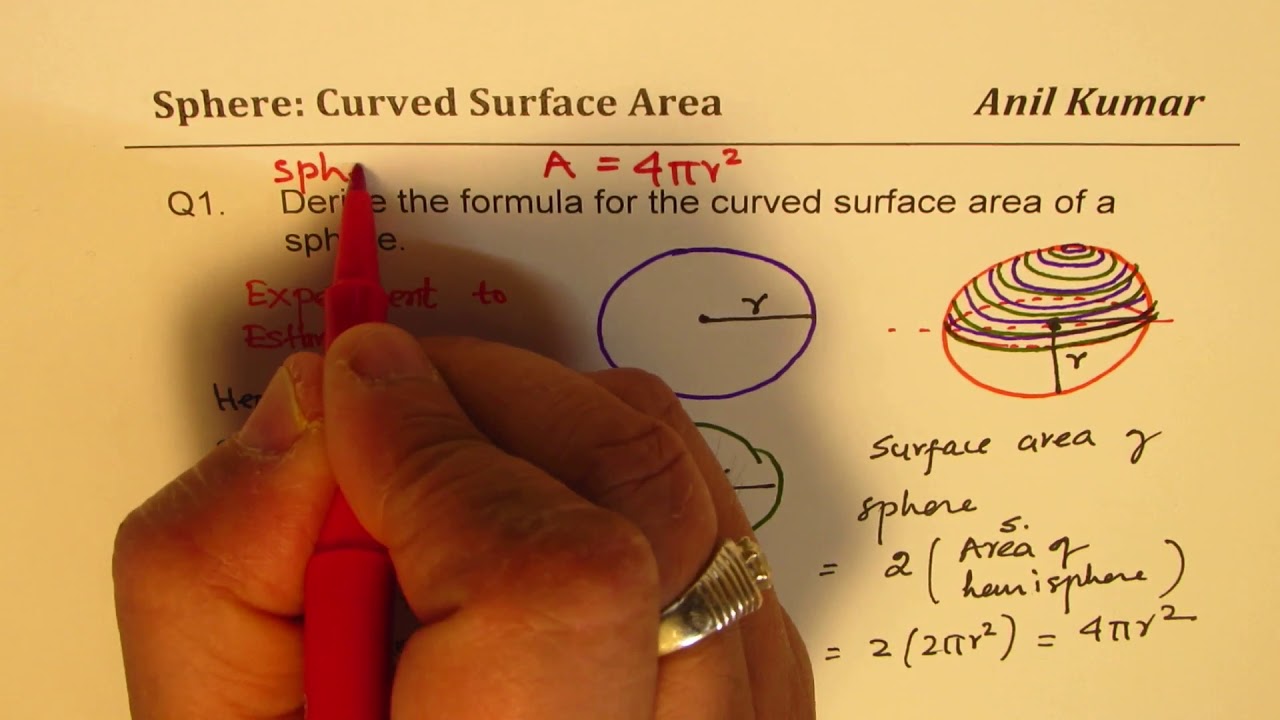 Sphere: Curved Surface Area
Anil Kumar
A = 4πr²
Q1. the formula for the curved surface area of a
to
r
r
Surface area
sphere
S.
= 2 ( Area of
hemisphere )
= 2 (2πr²) = 4πr²